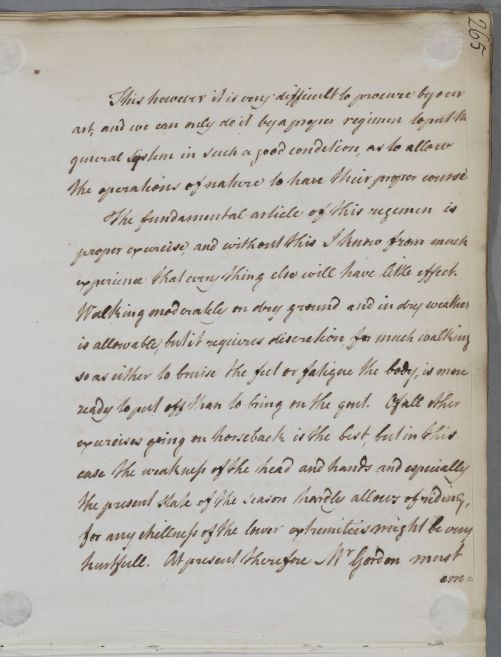 265
This however it is very difficult to procure by our
art, and we can only do it by a proper regimen to put the
general System in such a good condition, as to allow
the operations of nature to have their proper course
The fundamental article of this regimen is
proper exercise, and without this I know from much
experience that every thing else will have little effect.
Walking moderately on dry ground and in dry weather
is allowable, but it requires discretion for much walking
so as either to bruise the feet or fatigue the body, is more
ready to put off than to bring on the gout. Of all other
exercises going on horseback is the best but in this
case the weakness of the head and hands and especially
the present state of the season hardly allows of riding,
for any chillness of the lower extremities might be very
hurtfull. At present therefore Mr Gordon must
em=